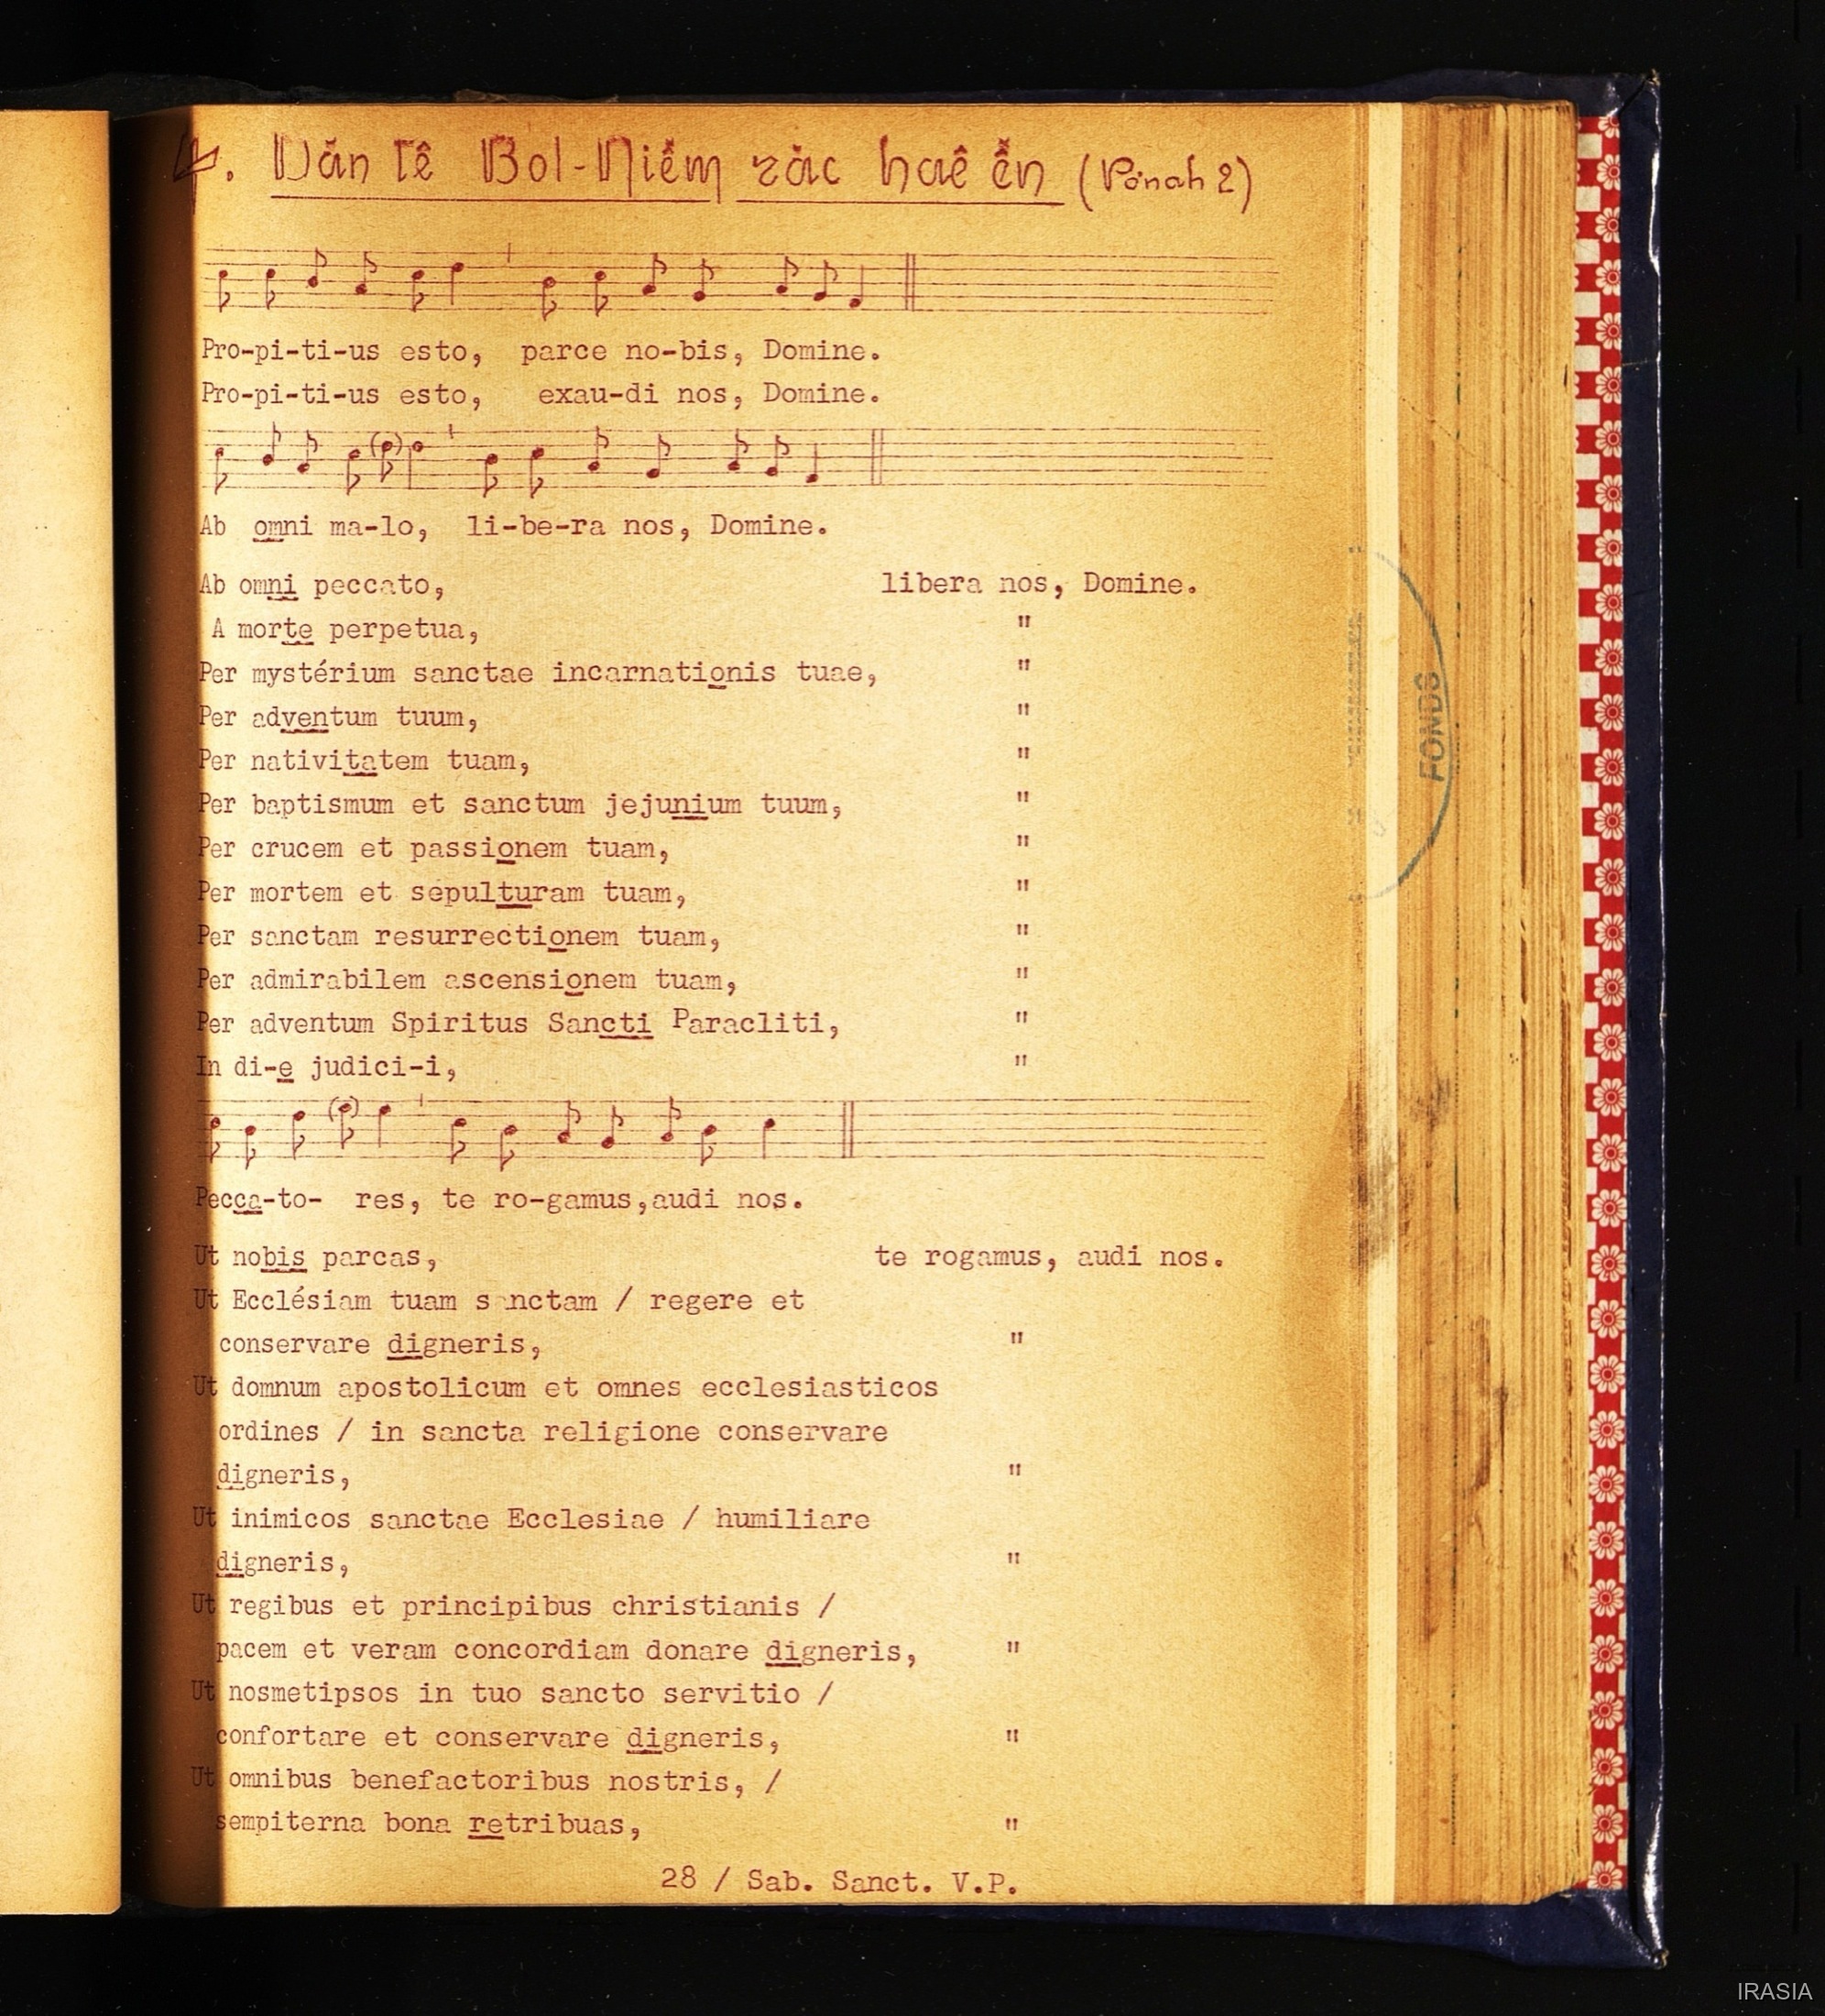 4. Dăn Tê Bol-Niêm răc haê ên (Pơnah 2)
Pro-pi-ti-us esto, parce no-bis, Domine.
Pro-pi-ti-us esto, exau-di nos, Domine.
Ab omni ma-lo, li-be-ra nos, Domine.
Ab omni peccato, libera nos, Domine.
A morte perpetua, "
Per mystérium sanctae incarnationis tuae, "
Per adventum tuum, "
Per nativitatem tuam, "
Per baptismum et sanctum jejunium tuum, "
Per crucem et passionem tuam, "
Per mortem et sepulturam tuam, "
Per sanctam resurrectionem tuam, "
Per admirabilem ascensionem tuam, "
Per adventum Spiritus Sancti Paracliti, "
In di-e judici-i, "
Pecca-to- res, te ro-gamus,audi nos.
Ut nobis parcas, te rogamus, audi nos.
Ut Ecclésiam tuam sanctam / regere et
conservare digneris, "
Ut domnum apostolicum et omnes ecclesiasticos
ordines / in sancta religione conservare
digneris, "
Ut inimicos sanctae Ecclesiae / humiliare
digneris, "
Ut regibus et principibus christianis /
pacem et veram concordiam donare digneris, "
Ut nosmetipsos in tuo sancto servitio /
confortare et conservare digneris, "
Ut omnibus benefactoribus nostris, /
sempiterna bona retribuas, "
28 / Sab. Sanct. V.P.
FONDS
IRASIA